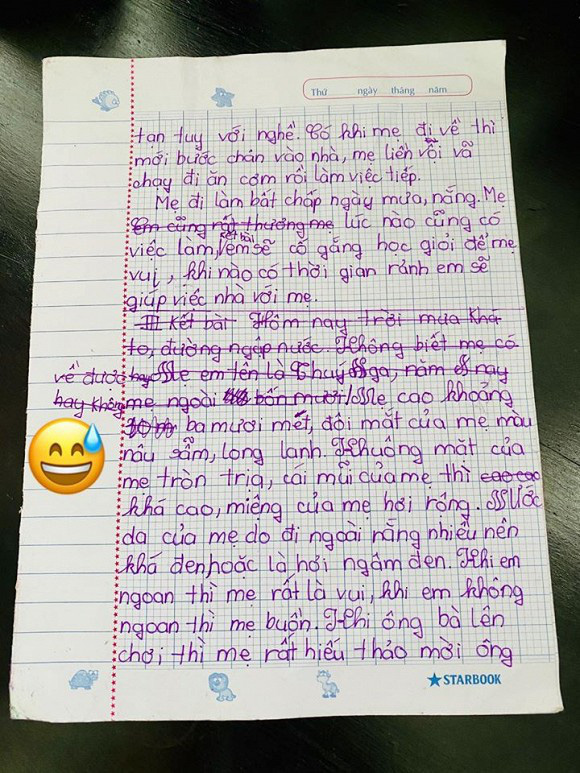 Thứ ngày tháng năm
tan tuy với nghề. Có khi mẹ đi về thì
mới bước chân vào nhà, mẹ liền vội vã
chay đi ăn cơm rồi làm việc tiếp.
Mẹ đi làm bất chấp ngày mưa, nắng. Mẹ
Em cũng rất thương mẹ lúc nào cũng có
kết bài
việc làm, em sẽ cố gắng học giỏi để mẹ
vui, khi nào có thời gian rảnh em sẽ
giúp việc nhà với mẹ.
III Kết bài Hôm nay trời mưa khá
to, đường ngập nước. Không biết mẹ có
về được hay Mẹ em tên là Thuý Nga, năm nay
hay không mẹ ngoài bốn mươi Mẹ cao khoảng
ba mươi mét, đôi mắt của mẹ màu
nâu sẫm, long lanh. Khuông mặt của
mẹ tròn trịa, cái mũi của mẹ thì cao cao
khá cao, miệng của mẹ hơi rộng. Nước
da của mẹ do đi ngoài nắng nhiều nên
khá đen, hoặc là hơi ngâm đen. Khi em
ngoan thì mẹ rất là vui, khi em không
ngoan thì mẹ buồn. Khi ông bà lên
chơi thì mẹ rất hiếu thảo mời ông
STARBOOK